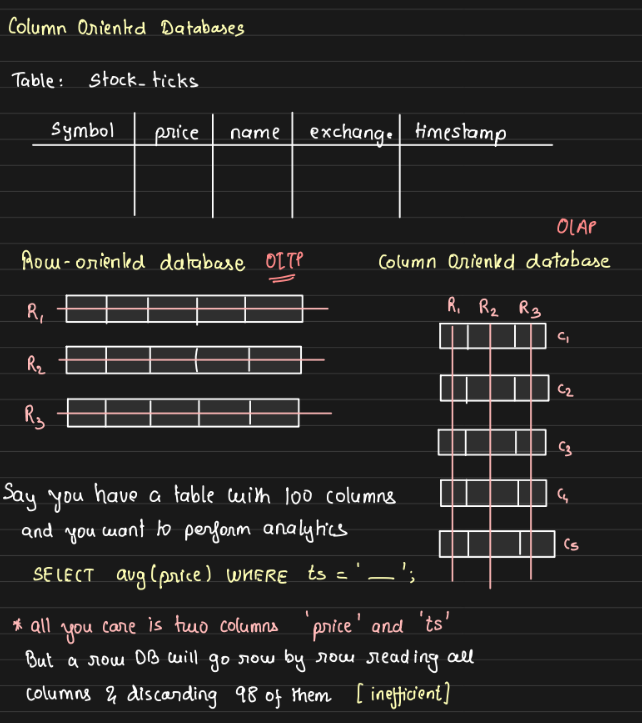 Column Oriented Databases
Table: Stock_ticks
Symbol price name exchange timestamp
OLAP
Row-oriented database OLTP Column Oriented database
R1 R2 R3
R1
C1
R2
C2
R3
C3
C4
C5
Say you have a table with 100 columns
and you want to perform analytics
SELECT avg(price) WHERE ts = '__';
* all you care is two columns 'price' and 'ts'
But a row DB will go row by row reading all
columns & discarding 98 of them [inefficient]